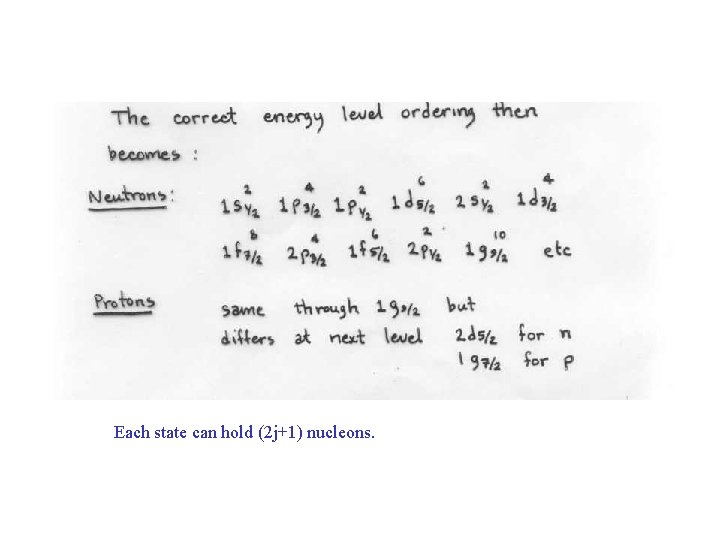 The correct energy level ordering then
becomes :
Neutrons: 1s1/2² 1p3/2⁴ 1p1/2² 1d5/2⁶ 2s1/2² 1d3/2⁴
1f7/2⁸ 2p3/2⁴ 1f5/2⁶ 2p1/2² 1g9/2¹⁰ etc
Protons same through 1g9/2 but
differs at next level 2d5/2 for n
1g7/2 for p
Each state can hold (2j+1) nucleons.